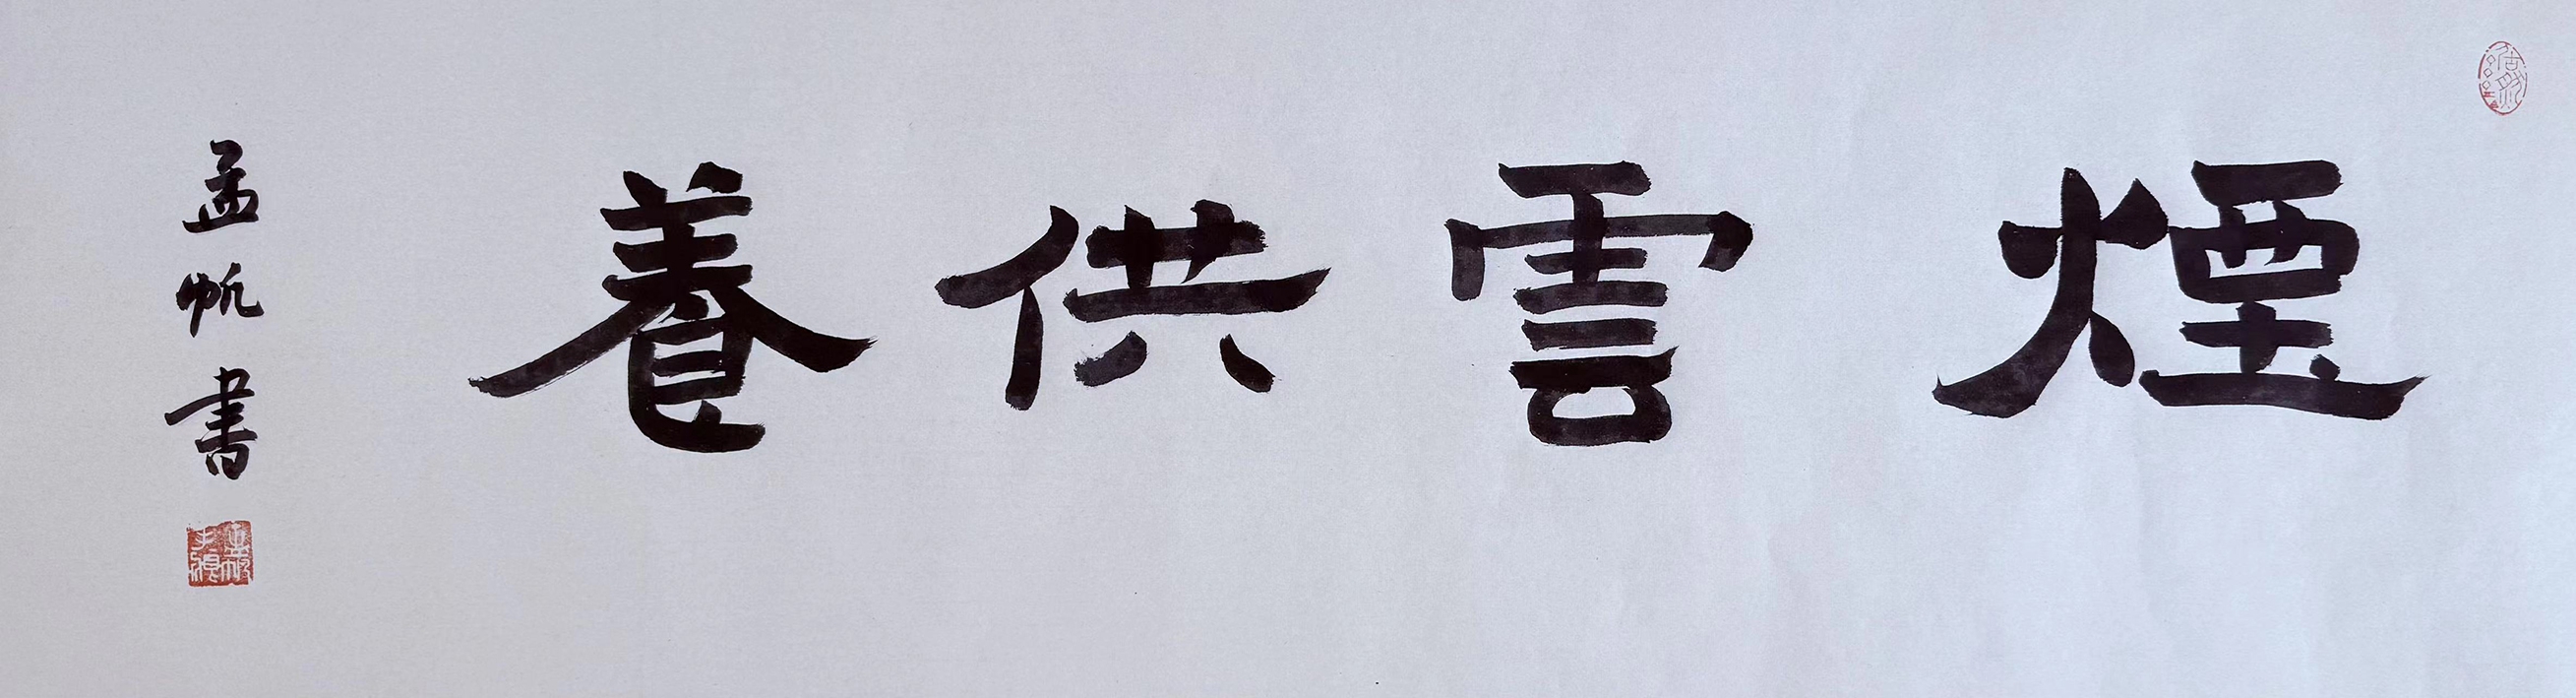 煙雲供養
孟帆書